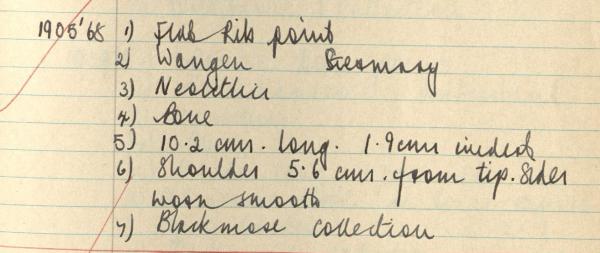 1905'65 1) Flat Rib point
2) Wangen Germany
3) Neolithic
4) Bone
5) 10.2 cms. long. 1.9cms widest
6) Shoulder 5.6 cms. from tip. Sides
worn smooth
7) Blackmore collection